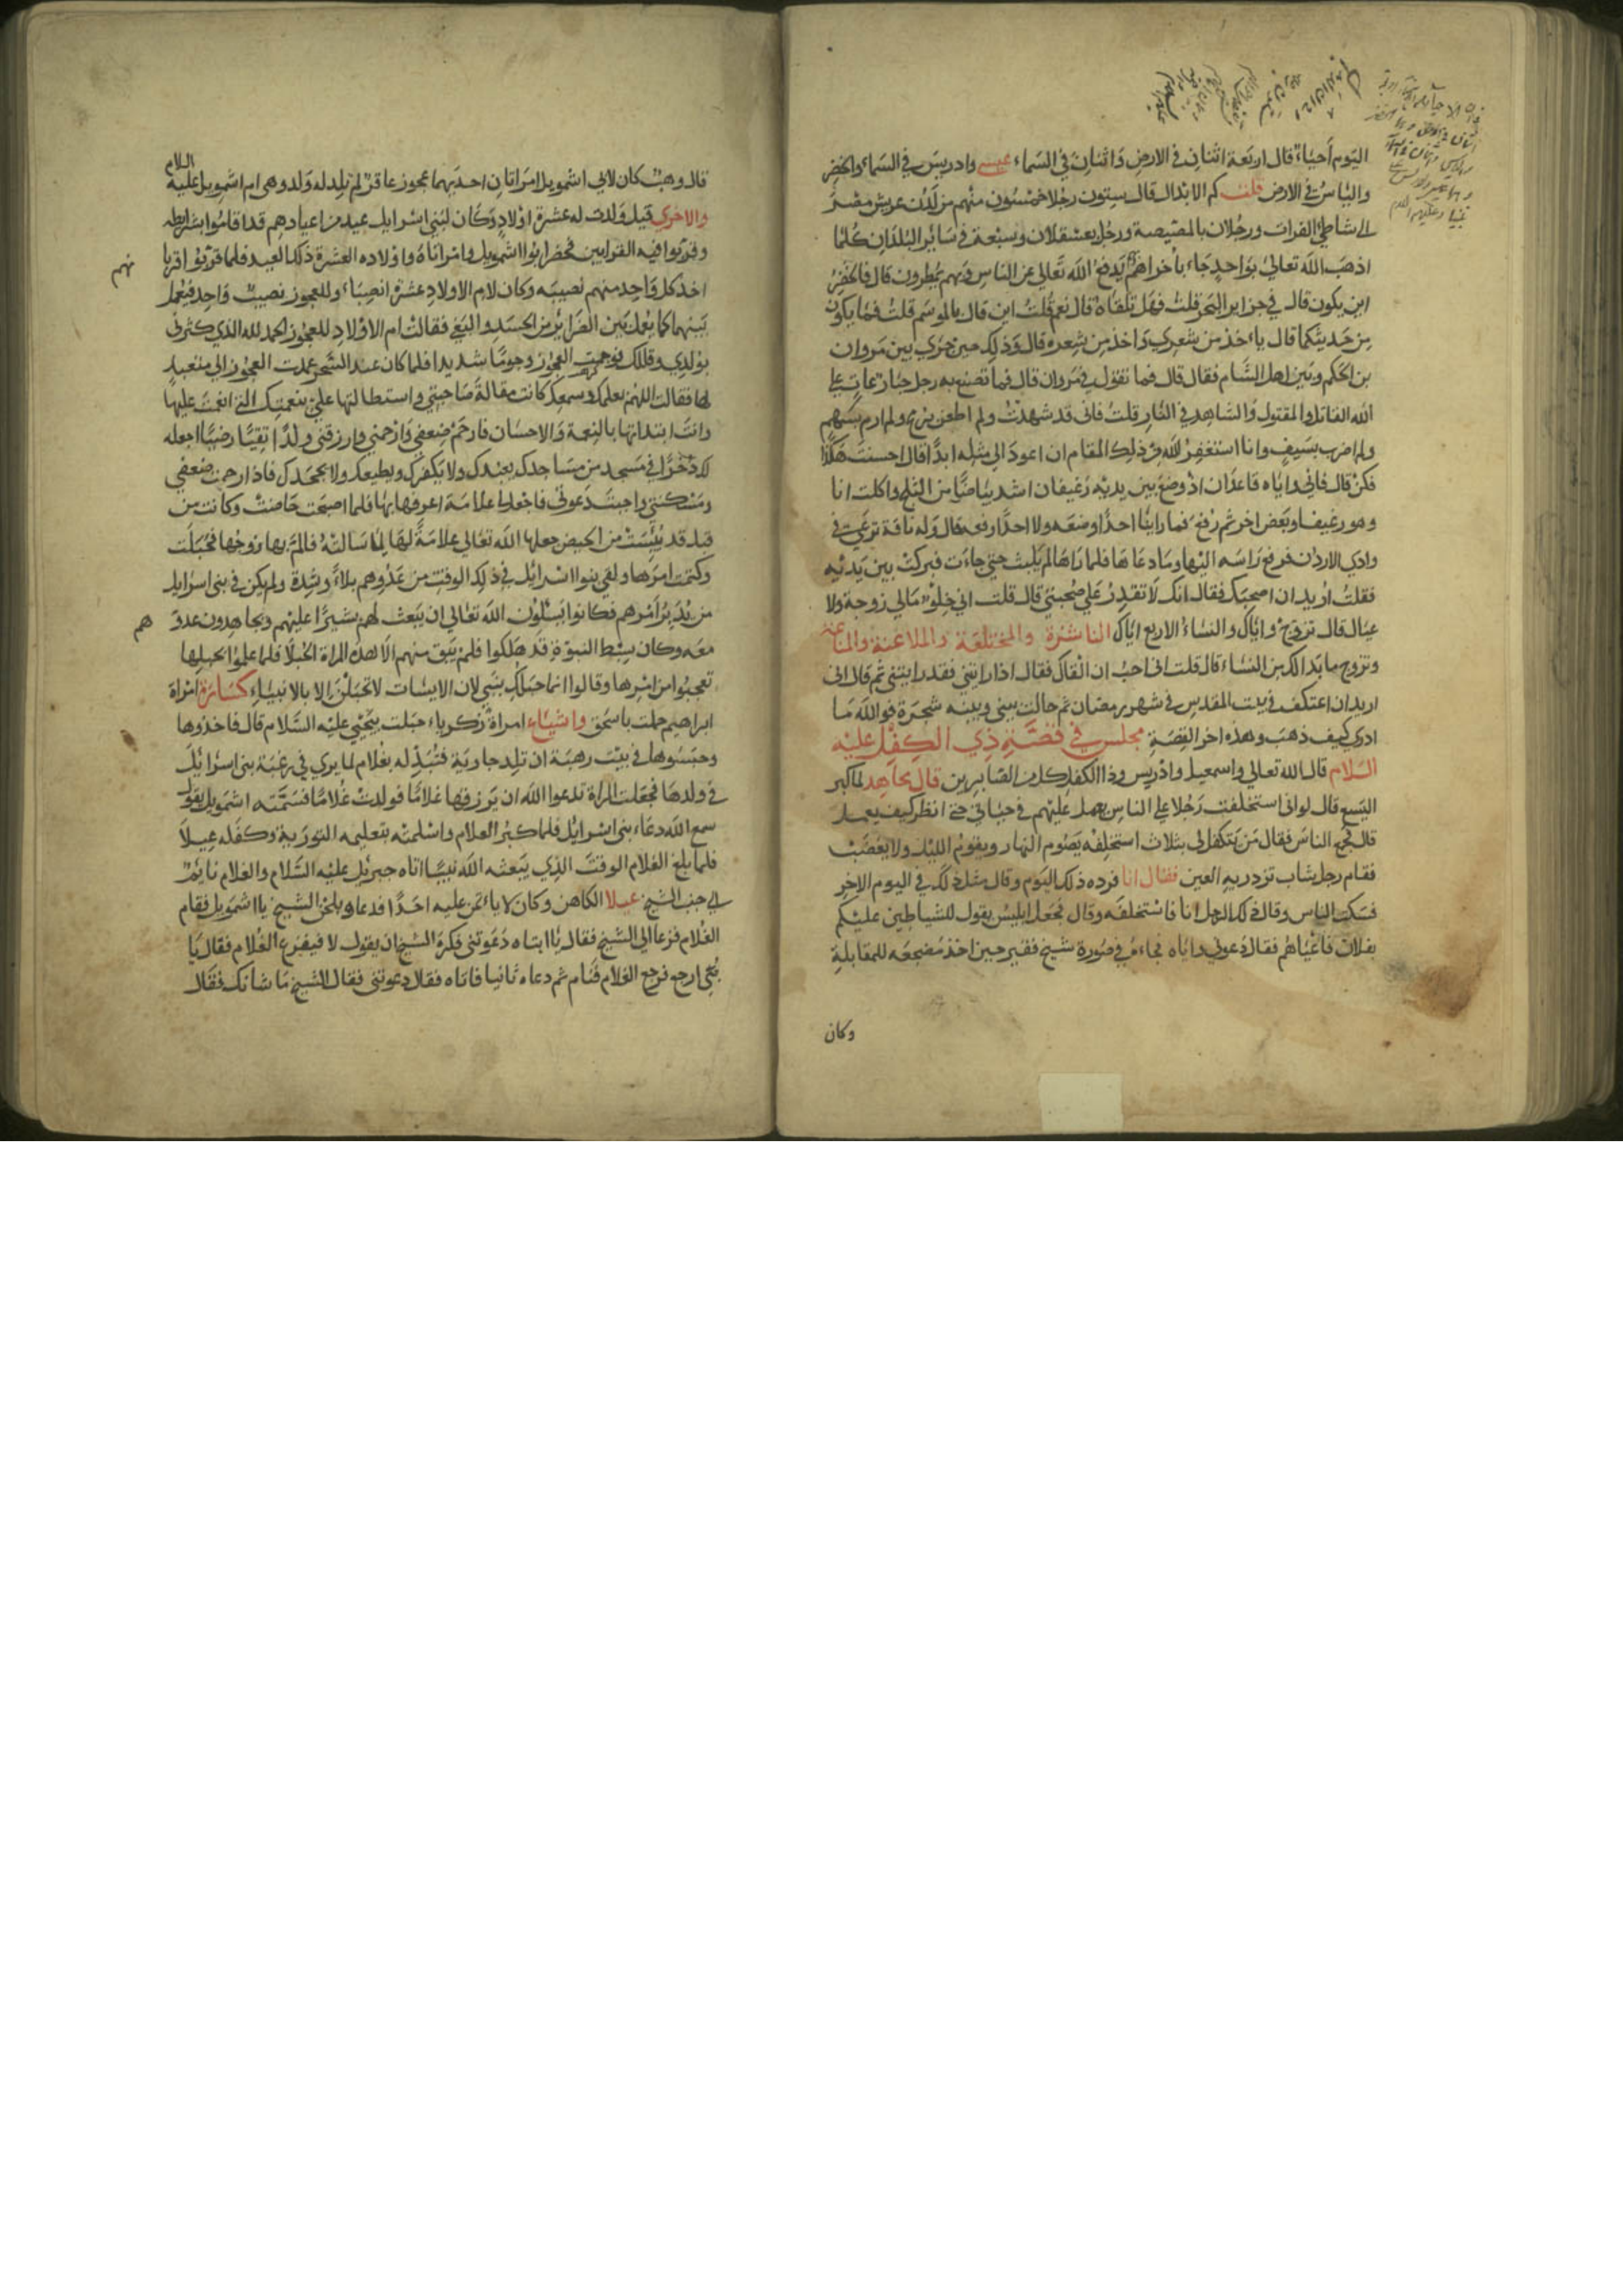 اليوم أحياء قال اربعة اثنان في الارض واثنان في السماء عيسى وادريس في السماء والخضر
والياس في الارض قلت كم الابدال قال ستون رجلا خمسون منهم من لدن عريش مصر
الى شاطئ الفرات ورجلان بالمصيصة ورجل بعسقلان وسبعة في سائر البلدان كلما
اذهب الله تعالى بواحد جاء بآخر بهم يدفع الله تعالى عن الناس وبهم يمطرون قال فالخضر
اين يكون قال في جزاير البحر قلت فهل تلقاه قال نعم قلت اين قال بالموسم قلت فما يكون
من حديثكما قال ياخذ من شعري واخذ من شعره قال وذلك حين جرى بين مروان
بن الحكم وبين اهل الشام فقال قال فما تقول في مروان قال فما تصنع به رجل جبار عات على
الله القاتل والمقتول والشاهد في النار قلت فاني قد شهدت ولم اطعن برمح ولم ارم بسهم
ولم اضرب بسيف وانا استغفر الله من ذلك المقام ان اعود الى مثله ابدا قال احسنت هكذا
فكن قال فاني واياه قاعدان اذ وضع بين يديه رغيفان اشد بياضا من الثلج واكلت انا
وهو رغيفا وبعض اخر ثم رفع فما راينا احدا وضعه ولا احدا رفعه قال وله ناقة ترعى في
وادي الاردن فرفع راسه اليها وما دعاها فلما راها لم يلبث حتى جاءت فبركت بين يديه
فقلت اريد ان اصحبك فقال انك لا تقدر على صحبتي قال قلت اني خلو مالي زوجة ولا
عيال قال تزوج واياك والنساء الاربع اياك الناشزة والمختلعة والملاعنة
وتزوج ما بدا لك من النساء قال قلت اني احب ان القاك فقال اذا رايتني فقد رايتني ثم قال اني
اريد ان اعتكف في بيت المقدس في شهر رمضان ثم حالت بيني وبينه شجرة فوالله ما
ادري كيف ذهب وهذه اخر القصة مجلس في قصة ذي الكفل عليه
السلام قال الله تعالى واسمعيل وادريس وذا الكفل كل من الصابرين قال مجاهد لما كبر
اليسع قال لو اني استخلفت رجلا على الناس يعمل عليهم في حياتي حتى انظر كيف يعمل
قال فجمع الناس فقال من يتكفل لي بثلاث استخلفه يصوم النهار ويقوم الليل ولا يغضب
فقام رجل شاب تزدريه العين فقال انا فرده ذلك اليوم وقال مثل ذلك في اليوم الاخر
فسكت الناس وقال ذلك الرجل انا فاستخلفه وقال فجعل ابليس يقول للشياطين عليكم
بفلان فاعياهم فقال دعوني واياه فجاءه في صورة شيخ فقير حين اخذ مضجعه للمقابلة
وكان
قال وهب كان لابي اشمويل امراتان احديهما عجوز عاقر لم تلد له ولد وهي ام اشمويل عليه السلام
والاخرى قيل ولدت له عشرة اولاد وكان لبني اسرايل عيد من اعيادهم قد اقاموا شرايطه
وقربوا فيه القرابين فحضر ابو اشمويل وامراتاه واولاده العشرة ذلك العيد فلما قربوا قربا
نهم
اخذ كل واحد منهم نصيبه وكان لام الاولاد عشرة انصباء وللعجوز نصيب واحد فعمل
بينهما كما يعمل بين الضراير من الحسد والبغي فقالت ام الاولاد للعجوز الحمد لله الذي كثرني
بولدي وقللك فوجمت العجوز وجوما شديدا فلما كان عند السحر عمدت العجوز الى متعبد
لها فقالت اللهم بعلمك وسمعك كانت مقالة صاحبتي واستطالتها علي بنعمتك التي انعمت عليها
وانت ابتداتها بالنعمة والاحسان فارحم ضعفي وارحمني وارزقني ولدا تقيا رضيا اجعله
لك ذخرا في مسجد من مساجدك يعبدك ولا يكفرك ويطيعك ولا يجحدك فاذا رحمت ضعفي
ومسكنتي واجبت دعوتي فاجعل لها علامة اعرفها بها فلما اصبحت حاضت وكانت من
قبل قد يئست من الحيض جعلها الله تعالى علامة لها لما سالته فالم بها زوجها فحبلت
وكتمت امرها ولقي بنوا اسرايل في ذلك الوقت من عدوهم بلاء وشدة ولم يكن في بني اسرايل
من يدبر امرهم فكانوا يسئلون الله تعالى ان يبعث لهم بشيرا عليهم ويجاهدون عدو
هم
معه وكان سبط النبوة قد هلكوا فلم يبق منهم الا هذه المراة الحبلا فلما علموا بحبلها
تعجبوا من امرها وقالوا انما حبلت بنبي لان الايسات لا تحبلن الا بالانبياء كسارة امراة
ابراهيم حملت باسحق واشياء امراة زكرياء حبلت بيحيى عليه السلام قال فاخذوها
وحبسوها في بيت رهبة ان تلد جارية فتبدله بغلام لما يرى في رغبة بني اسرايل
في ولدها فجعلت المراة تدعوا الله ان يرزقها غلاما فولدت غلاما فسمته اشمويل يقول
سمع الله دعاء بني اسرايل فلما كبر الغلام واسلمته بتعليمه التورية وكفله عيلا
فلما بلغ الغلام الوقت الذي يبعثه الله نبيا اتاه جبريل عليه السلام والغلام نائم
الى جنب الشيخ عيلا الكاهن وكان لا ياتمن عليه احدا فدعاه بلحن الشيخ يا اشمويل فقام
الغلام فزعا الى الشيخ فقال يا ابتاه دعوتني فكره الشيخ ان يقول لا فيفزع الغلام فقال يا
بني ارجع فرجع الغلام فنام ثم دعاه ثانيا فاتاه فقال دعوتني فقال الشيخ ما شانك فقال